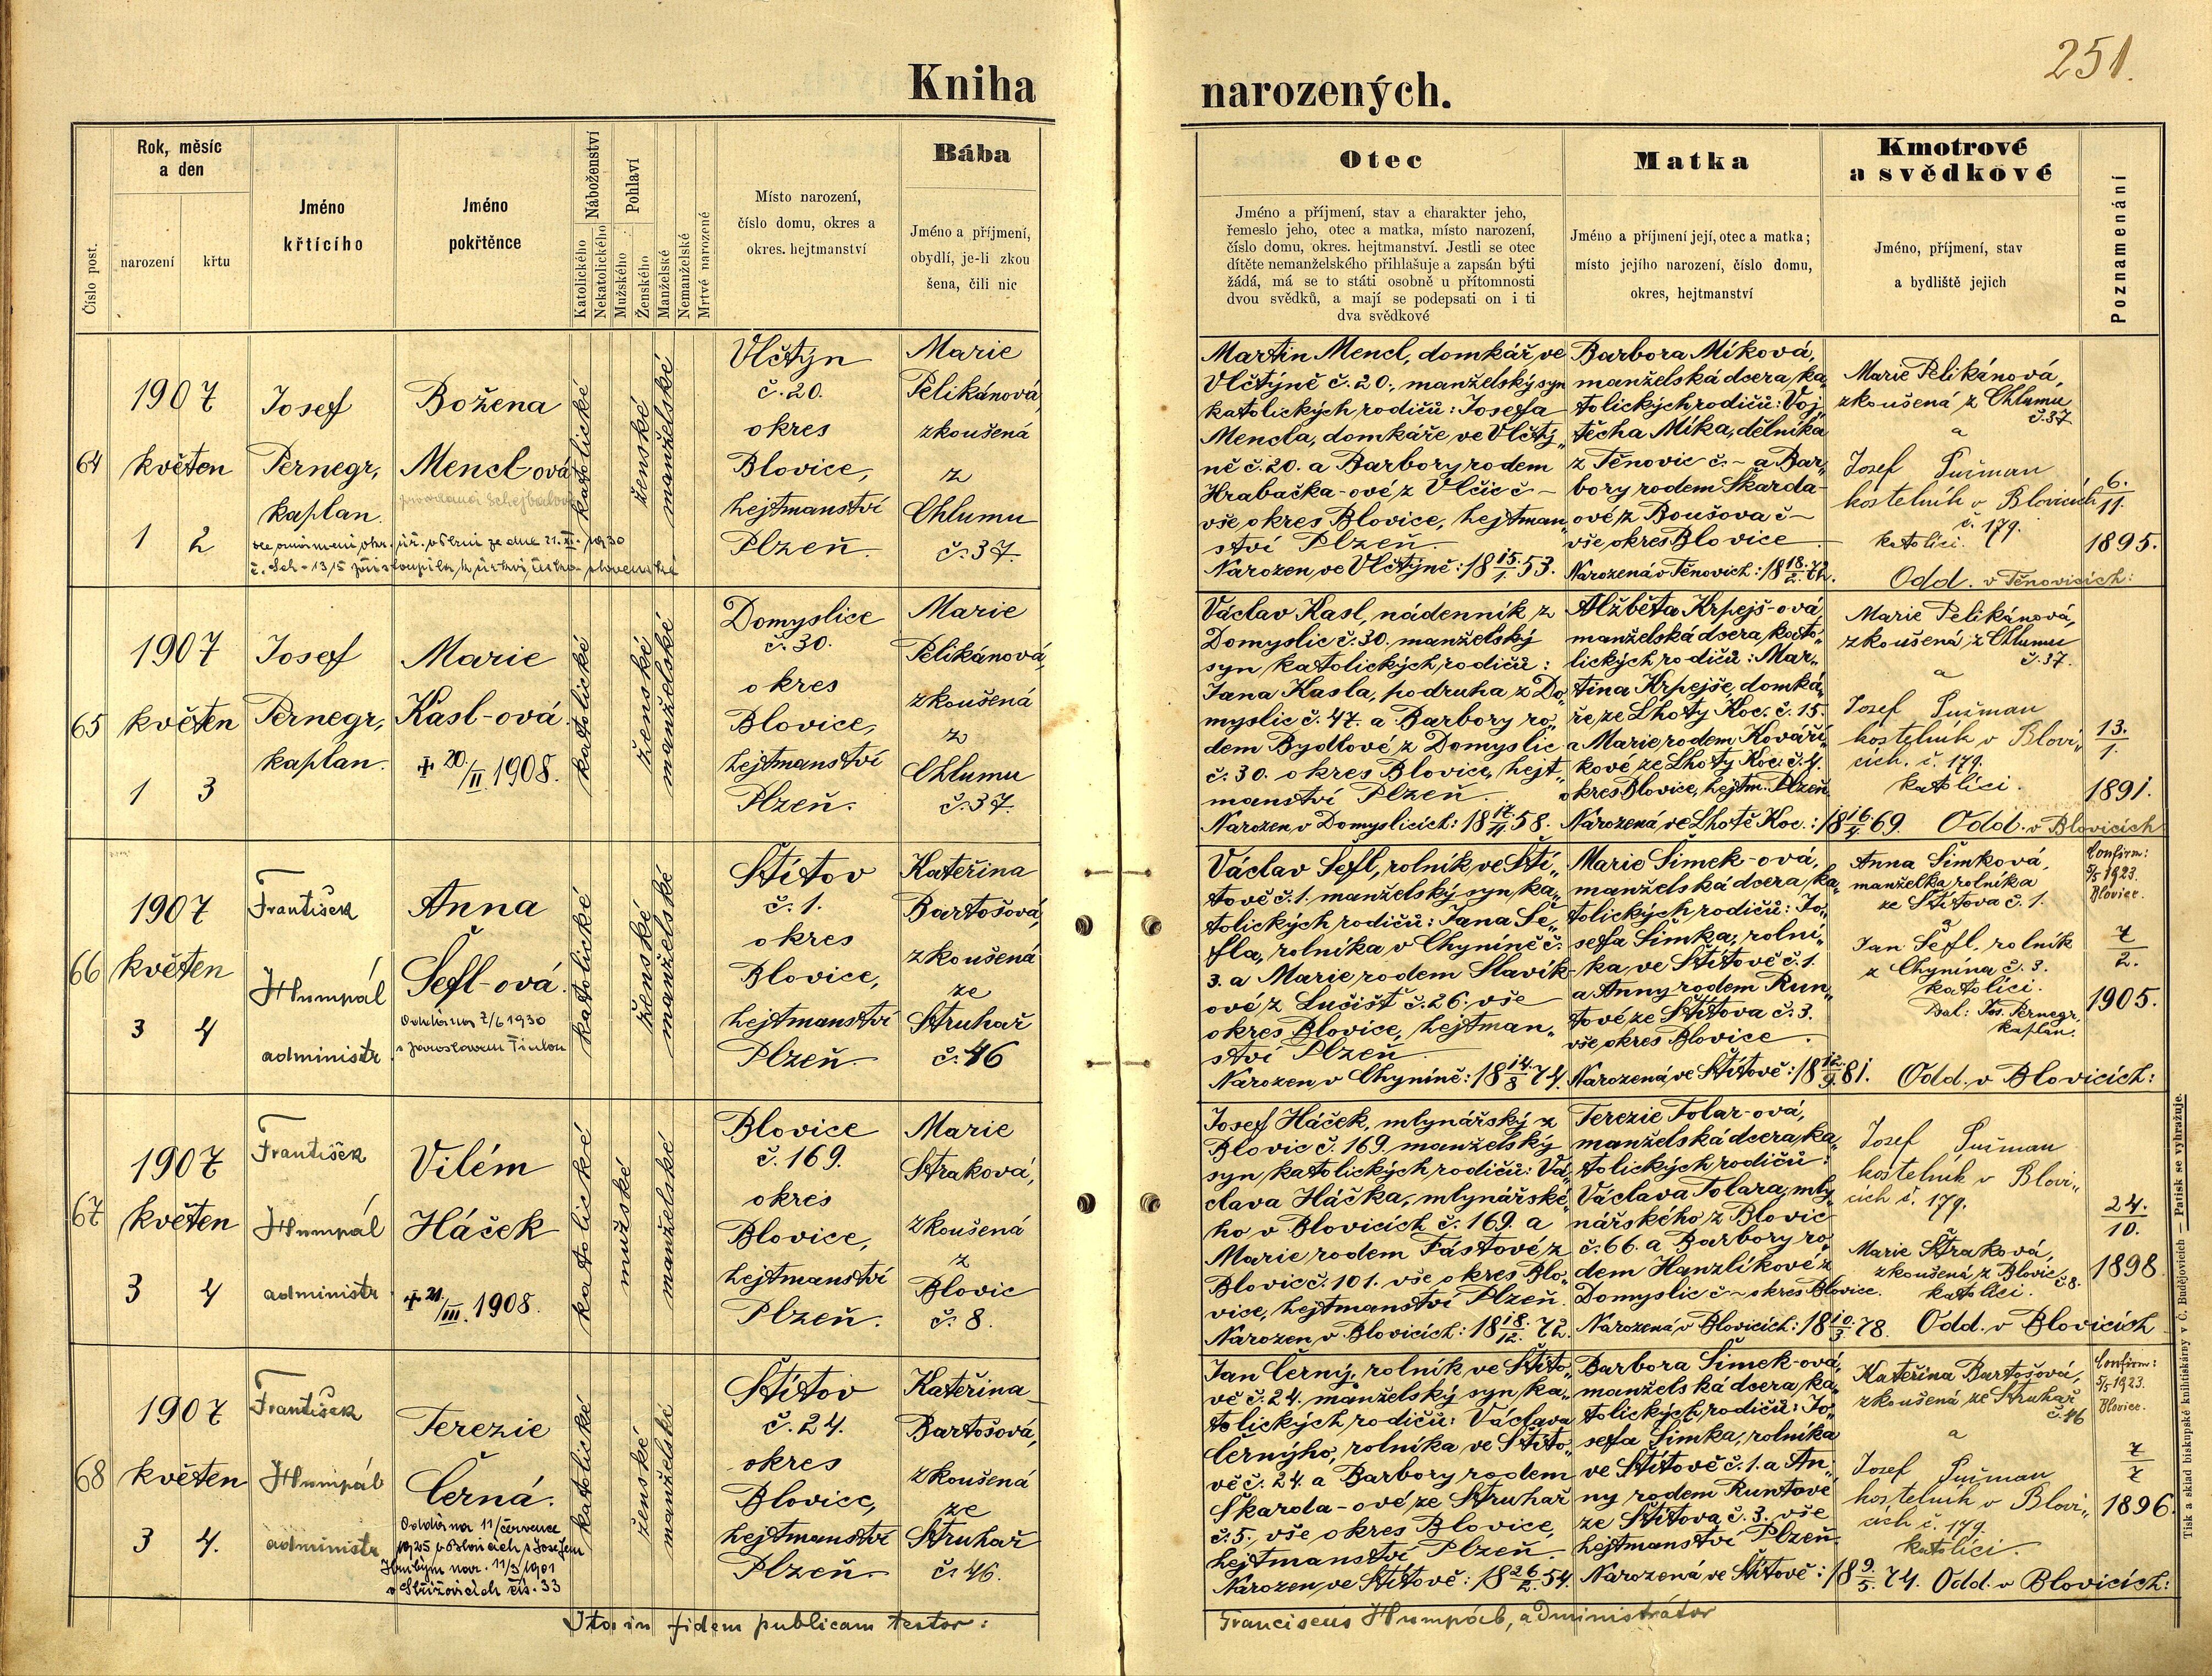 251.
Kniha narozených.
Číslo post.
Rok, měsíc
a den
narození
křtu
Jméno
křtícího
Jméno
pokřtěnce
Náboženství
Katolického
Nekatolického
Pohlaví
Mužského
Ženského
Manželské
Nemanželské
Mrtvé narozené
Místo narození,
číslo domu, okres a
okres. hejtmanství
Bába
Jméno a příjmení,
obydlí, je-li zkou
šena, čili nic
Otec
Jméno a příjmení, stav a charakter jeho,
řemeslo jeho, otec a matka, místo narození,
číslo domu, okres. hejtmanství. Jestli se otec
dítěte nemanželského přihlašuje a zapsán býti
žádá, má se to státi osobně u přítomnosti
dvou svědků, a mají se podepsati on i ti
dva svědkové
Matka
Jméno a příjmení její, otec a matka;
místo jejího narození, číslo domu,
okres, hejtmanství
Kmotrové
a svědkové
Jméno, příjmení, stav
a bydliště jejich
Poznamenání
64
1907
květen
1 2
Josef
Pernegr,
kaplan.
Božena
Mencl-ová
katolické
ženské
manželské
Vlčtýn
č. 20.
okres
Blovice,
hejtmanství
Plzeň.
Marie
Pelikánová,
zkoušená
z
Chlumu
č. 37.
Martin Mencl, domkář ve
Vlčtýně č. 20., manželský syn
katolických rodičů: Josefa
Mencla, domkáře ve Vlčtý„
ně č. 20. a Barbory rodem
Hrabačka-ové z Vlčic č –
vše okres Blovice, hejtman„
ství Plzeň.
Narozen ve Vlčtýně: 18 15./1. 53.
Barbora Míková,
manželská dcera ka„
tolických rodičů: Voj„
těcha Míka, dělníka
z Těnovic č. – a Bar„
bory rodem Skarda-
ové z Boušova č –
vše okres Blovice
Narozená v Těnovicích: 18 18./2. 72.
Marie Pelikánová,
zkoušená z Chlumu
č. 37
a
Josef Pučman
kostelník v Blovicích
č. 179.
katolíci.
6./11.
1895.
Odd. v Těnovicích:
65
1907
květen
1 3
Josef
Pernegr,
kaplan.
Marie
Kasl-ová.
+ 20./II 1908.
katolické
ženské
manželské
Domyslice
č. 30.
okres
Blovice,
hejtmanství
Plzeň.
Marie
Pelikánová,
zkoušená
z
Chlumu
č. 37.
Václav Kasl, nádenník z
Domyslic č. 30. manželský
syn katolických rodičů:
Jana Kasla, podruha z Do„
myslic č. 47. a Barbory ro„
dem Bydlové z Domyslic
č. 30. okres Blovice, hejt„
manství Plzeň.
Narozen v Domyslicích: 18 17./11. 58.
Alžběta Krpejš-ová,
manželská dcera kato„
lických rodičů: Mar„
tina Krpejše, domká„
ře ze Lhoty Koc. č. 15.
a Marie rodem Kováří„
kové ze Lhoty Koc. č. 4.
okres Blovice, hejtm. Plzeň.
Narozená ve Lhotě Koc.: 18 16./4. 69.
Marie Pelikánová,
zkoušená z Chlumu
č. 37.
a
Josef Pučman
kostelník v Blovi„
cích. č. 179.
katolíci.
13./1.
1891.
Odd. v Blovicích
66
1907
květen
3 4
František
Humpál
administr
Anna
Šefl-ová.
Oddána 7/6 1930
katolické
ženské
manželské
Štítov
č. 1.
okres
Blovice,
hejtmanství
Plzeň.
Kateřina
Bartošová,
zkoušená
ze
Struhař
č. 46
Václav Šefl, rolník ve Ští„
tově č. 1. manželský syn ka„
tolických rodičů: Jana Še„
fla, rolníka v Chyníně č.
3. a Marie rodem Slavík-
ové z Lučišť č. 26. vše
okres Blovice, hejtman„
ství Plzeň
Narozen v Chyníně: 18 14./8. 74.
Marie Šimek-ová,
manželská dcera ka„
tolických rodičů: Jo„
sefa Šimka, rolní„
ka ve Štítově č. 1.
a Anny rodem Run„
tové ze Štítova č. 3.
vše okres Blovice.
Narozená ve Štítově: 18 12./9. 81.
Anna Šimková,
manželka rolníka
ze Štítova č. 1.
a
Jan Šefl, rolník
z Chynína č. 3.
katolíci.
Bal: Jos. Pernegr,
kaplan.
Confirm:
5/5 1923.
Blovice.
7/2.
1905.
Odd. v Blovicích:
67
1907
květen
3 4
František
Humpál
administr
Vilém
Háček
+ 21./III. 1908.
katolické
mužské
manželské
Blovice
č. 169.
okres
Blovice,
hejtmanství
Plzeň.
Marie
Straková,
zkoušená
z
Blovic
č. 8.
Josef Háček, mlynářský z
Blovic č. 169. manželský
syn katolických rodičů: Vá„
clava Háčka, mlynářské„
ho v Blovicích č. 169. a
Marie rodem Fástové z
Blovic č. 101. vše okres Blo„
vice, hejtmanství Plzeň.
Narozen v Blovicích: 18 18./12. 72.
Terezie Tolar-ová,
manželská dcera ka„
tolických rodičů:
Václava Tolara, mly„
nářského z Blovic
č. 66. a Barbory ro„
dem Hanzlíkové z
Domyslic č – okres Blovice.
Narozená v Blovicích: 18 10./3. 78.
Josef Pučman
kostelník v Blovi„
cích č. 179.
a
Marie Straková,
zkoušená z Blovic
č. 8.
katolíci.
24./10.
1898
Odd. v Blovicích
68
1907
květen
3 4.
František
Humpál
administr
Terezie
Černá.
Oddána 11/července
1925 v Blovicích s Josefem
Hrubým nar. 11/3 1901
v Střížovicích čís. 33
katolické
ženské
manželské
Štítov
č. 24.
okres
Blovice,
hejtmanství
Plzeň.
Kateřina
Bartošová,
zkoušená
ze
Struhař
č. 46.
Jan Černý, rolník ve Štíto„
vě č. 24. manželský syn ka„
tolických rodičů: Václava
Černýho, rolníka ve Štíto„
vě č. 24. a Barbory rodem
Skarda-ové ze Struhař
č. 5. vše okres Blovice,
hejtmanství Plzeň.
Narozen ve Štítově: 18 26/2. 54.
Barbora Šimek-ová,
manželská dcera ka„
tolických rodičů: Jo„
sefa Šimka, rolníka
ve Štítově č. 1. a An„
ny rodem Runtové
ze Štítova č. 3. vše
hejtmanství Plzeň.
Narozená ve Štítově: 18 9./5. 74.
Kateřina Bartošová,
zkoušená ze Struhař
č. 46
a
Josef Pučman
kostelník v Blovi„
cích č. 179.
katolíci.
Confirm:
5/5 1923.
Blovice.
7/7
1896.
Odd. v Blovicích:
Ita in fidem publicam testor:
Franciscus Humpál, administrátor
Tisk a sklad biskupské knihtiskárny v Č. Budějovicích — Patisk se vyhražuje.